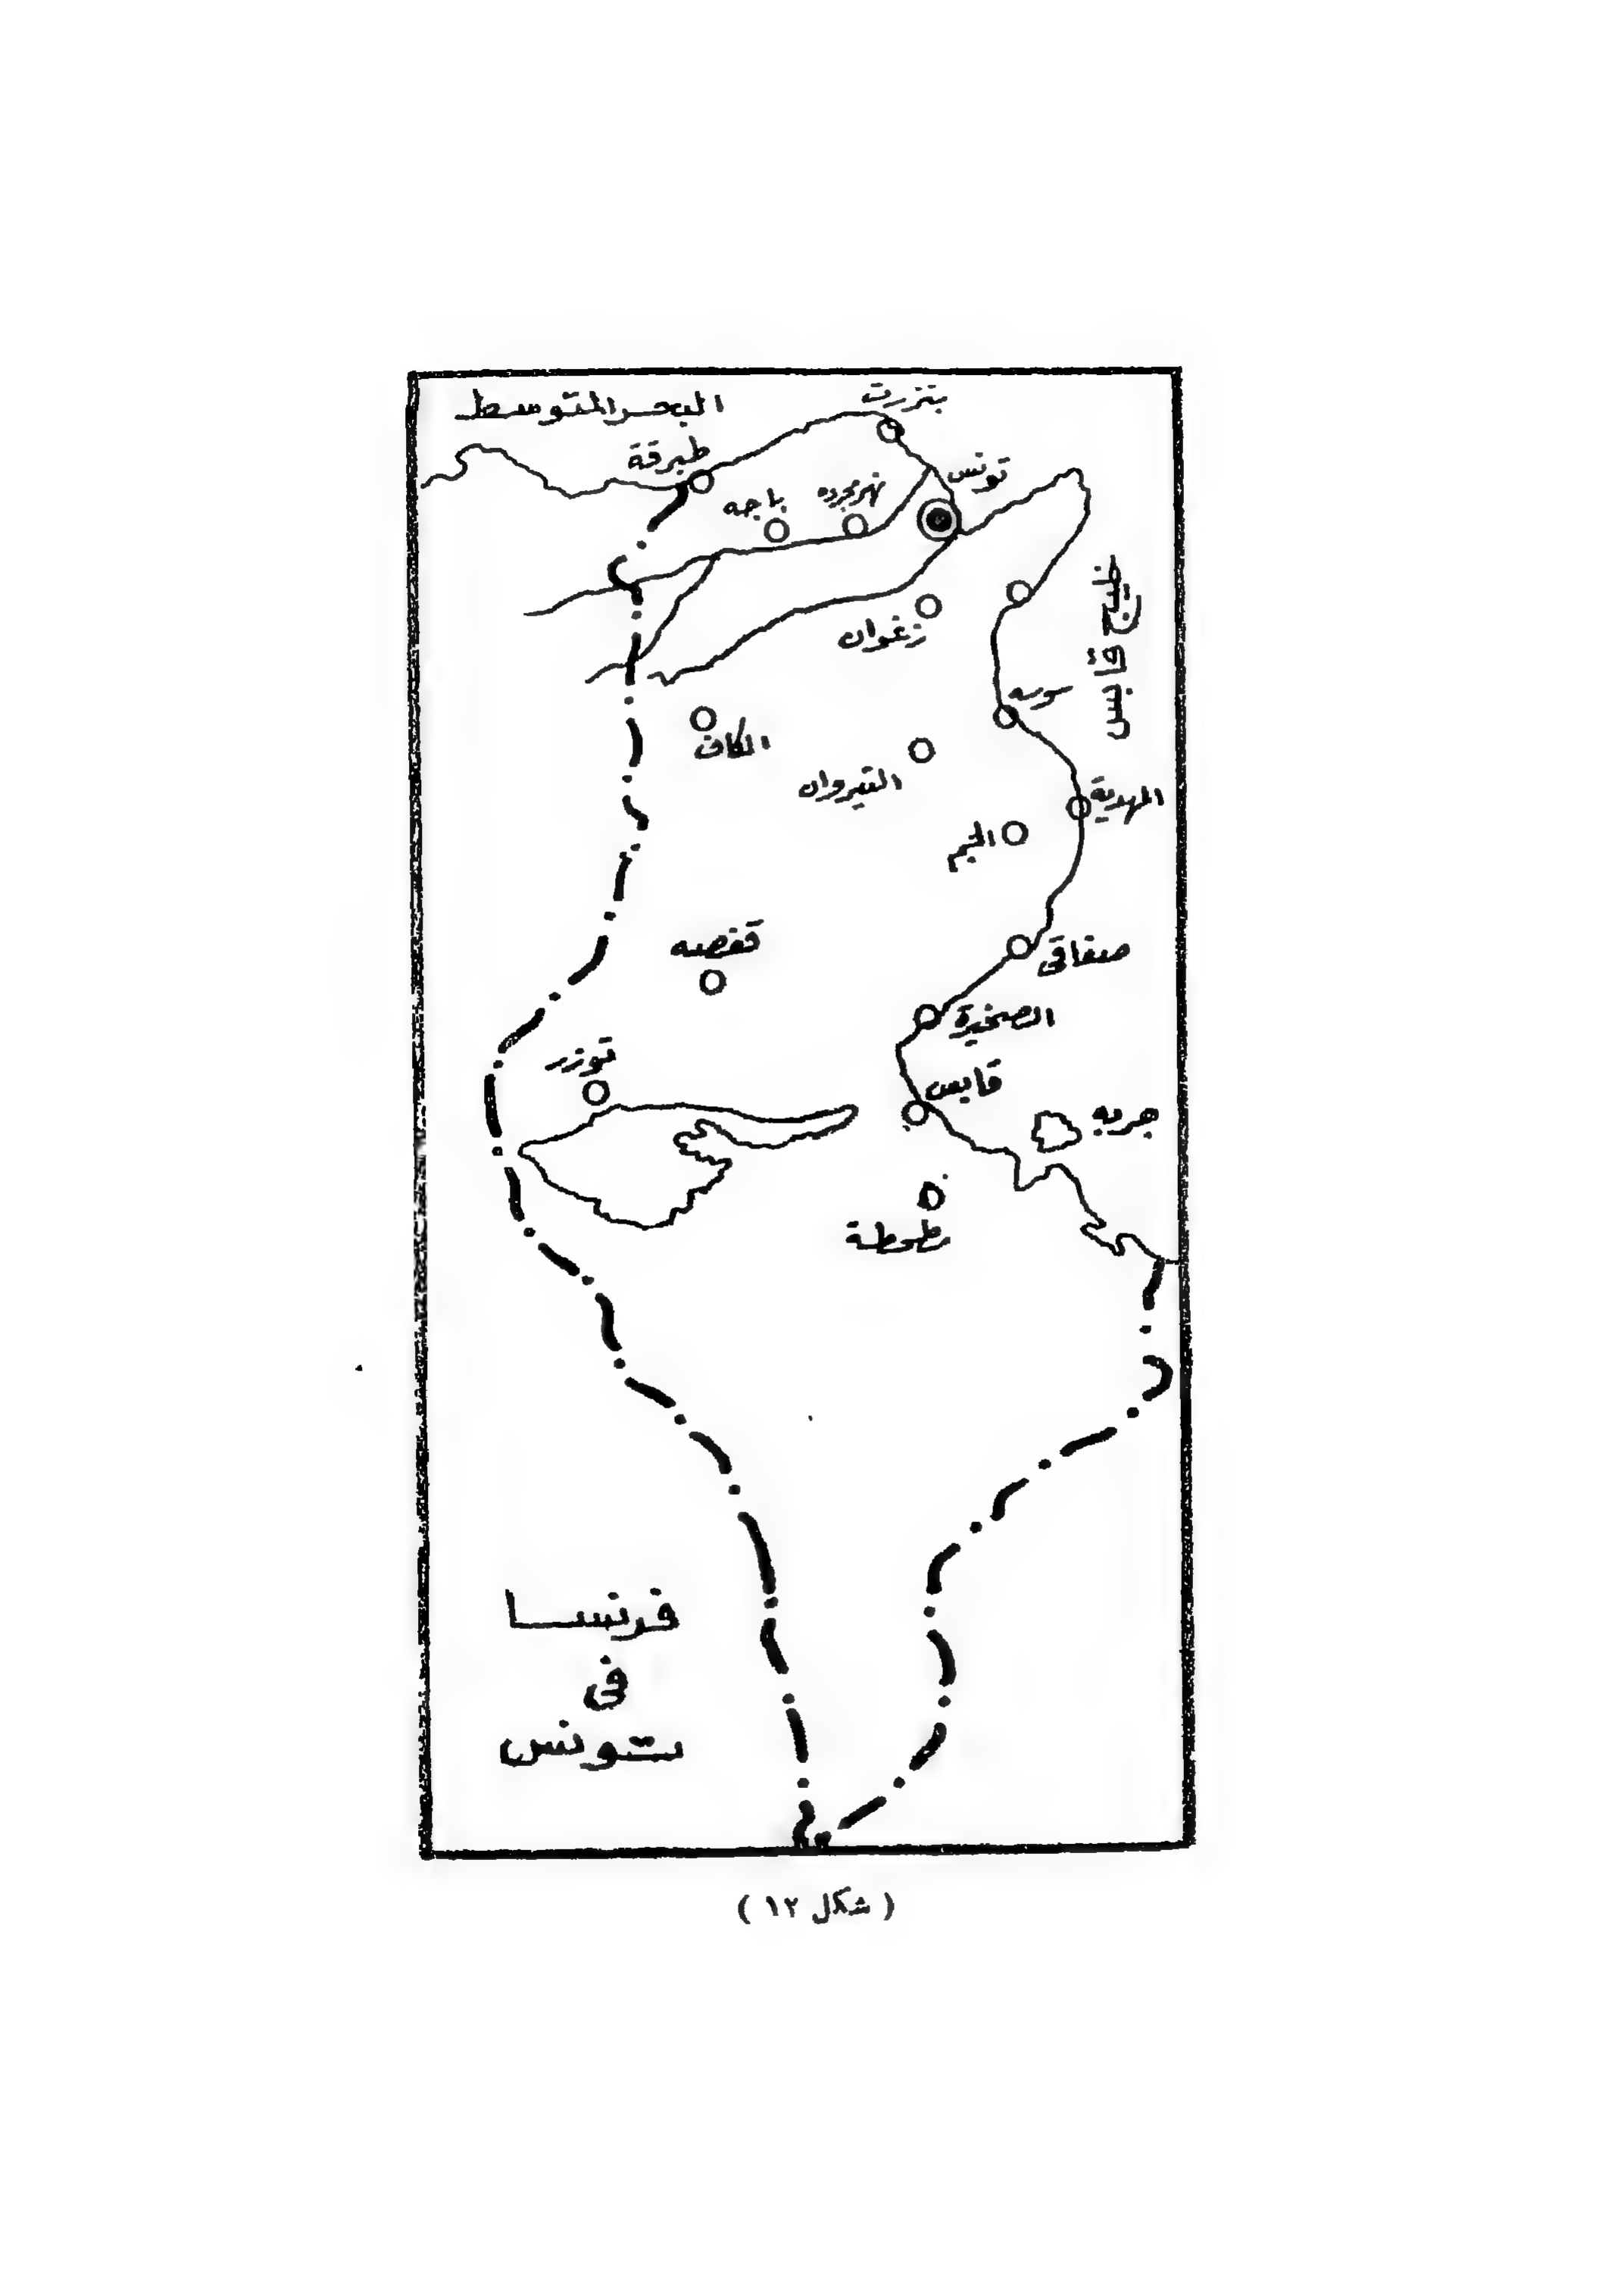 البحر المتوسط
بنزرت
طبرقة
تونس
باجه
نهر مجرده
زغوان
خليج قابس
سوسه
الكاف
القيروان
المهدية
الجم
قفصه
صفاقس
الصخيرة
توزر
قابس
جربه
مطمطة
فرنسا
فى
تونس
( شكل ١٢ )